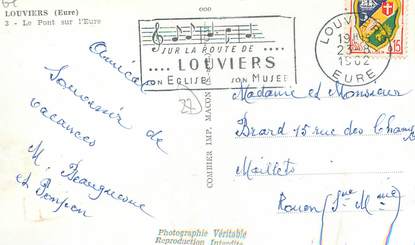 LOUVIERS (Eure)
3 - Le Pont sur l'Eure
Amical
Souvenir de
vacances
M. Beaugnesne
et Pompon
COMBIER IMP. MACON
SUR LA ROUTE DE
.... LOUVIERS ....
SON EGLISE SON MUSEE
LOUVIERS
23-8
1962
EURE
0,15
27
Madame et Monsieur
Brard 15 rue des Champs
Maillets
Rouen (Sne Mme)
Photographie Véritable
Reproduction Interdite